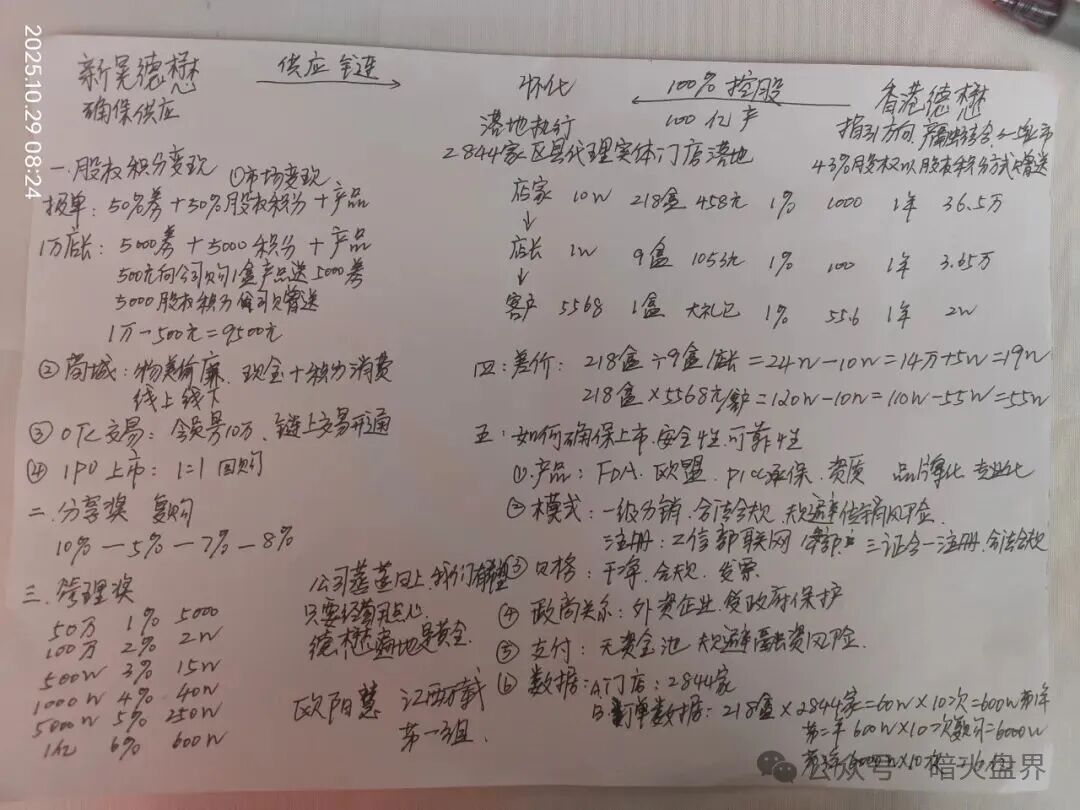 2025.10.29 08:24
新吴德懋 供应链 怀化 100%控股 香港德懋
确保供应 落地执行 100亿产 指引方向
2844家区县代理实体门店落地 43%股权以股权积分方式赠送
一.股权积分变现 ①市场变现
报单: 50%券+50%股权积分+产品
1万店长: 5000券+5000积分+产品
500元向公司购1盒产品送5000券
5000股权积分公司赠送
1万-500元=9500元
②商城: 物美价廉、现金+积分消费
线上线下
③OTC交易: 会员号10万、链上交易开通
④IPO上市: 1:1回购
二.分享奖 复购
10%-5%-7%-8%
三.管理奖
50万 1% 5000
100万 2% 2W
500W 3% 15W
1000W 4% 40W
5000W 5% 250W
1亿 6% 600W
公司蒸蒸日上,我们有梦想
只要经营用点心
德懋遍地是黄金
欧阳慧 江西戴
第一3组.
店家 10W 218盒 458元 1% 1000 1年 36.5万
店长 1W 9盒 1053元 1% 100 1年 3.65万
客户 5568 1盒 大礼包 1% 55.6 1年 2W
四:差价: 218盒÷9盒/店长=24W-10W=14万+5W=19W
218盒×5568元/客户=120W-10W=110W-55W=55W
五:如何确保上市、安全性、可靠性
①产品: FDA、欧盟、PICC承保、资质 品牌化 专业化
②模式: 一级分销、合法合规、规避传销风险.
注册: 工信部联网 三证合一注册,合法合规
③贝格: 干净、合规、发票
④政商关系: 外资企业、受政府保护
⑤支付: 无资金池 规避融资风险.
⑥数据: A门店: 2844家
B订单数据: 218盒×2844家=60W×10次=600W第1年
第二年600W×10次复购=6000W
第3年6000W×10次
公众号·暗火盘界